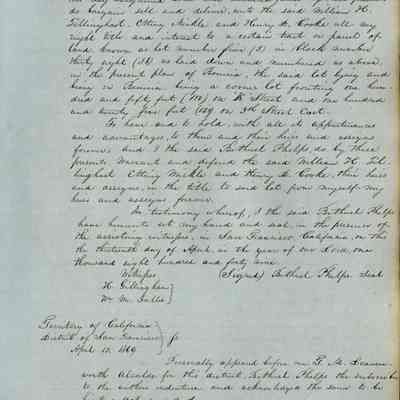 do bargain sell and deliver, unto the said William H.
Tillinghast, Etting Mickle and Henry D. Cooke all my
right title and interest to a certain tract or parcel of
land known as lot number five (5) in block number
thirty eight (38) as laid down and numbered as above,
in the present plan of Benicia, the said lot lying and
being in Benicia being a corner lot fronting one hun-
dred and fifty feet (150) on K Street and one hundred
and twenty five feet (125) on 5th Street East.
To have and to hold, with all its appurtenances
and advantages, to them and their heirs and assigns
forever, and I the said Bethuel Phelps, do by these
presents warrant and defend the said William H. Til-
linghast Etting Mickle and Henry D. Cooke, their heirs
and assigns, in the title to said lot from myself my
heirs and assigns forever.
In testimony whereof, I the said Bethuel Phelps
have hereunto set my hand and seal, in the presence of
the assisting witnesses, in San Francisco, California, on this
the thirteenth day of April, in the year of our Lord, one
thousand eight hundred and forty nine.
Witness (Signed) Bethuel Phelps seal
Wm M.
Territory of California
District of San Francisco
April 13, 1849
Personally appeared before me T. M. Leaven-
worth Alcalde for this district, Bethuel Phelps the subscriber
to the within indenture and acknowledged the same to be